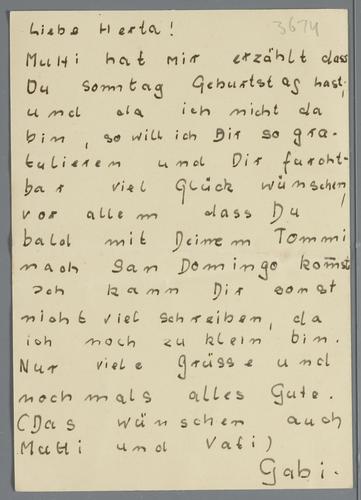 3674
Liebe Herta!
Mutti hat mir erzählt dass
Du Sonntag Geburtstag hast,
und da ich nicht da
bin, so will ich Dir so gra-
tulieren und Dir furcht-
bar viel Glück wünschen,
vor allem dass Du
bald mit Deinem Tommi
nach San Domingo kom̅st
Ich kann Dir sonst
nicht viel schreiben, da
ich noch zu klein bin.
Nur viele Grüsse und
nochmals alles Gute.
(Das wünschen auch
Mutti und Vati)
Gabi.